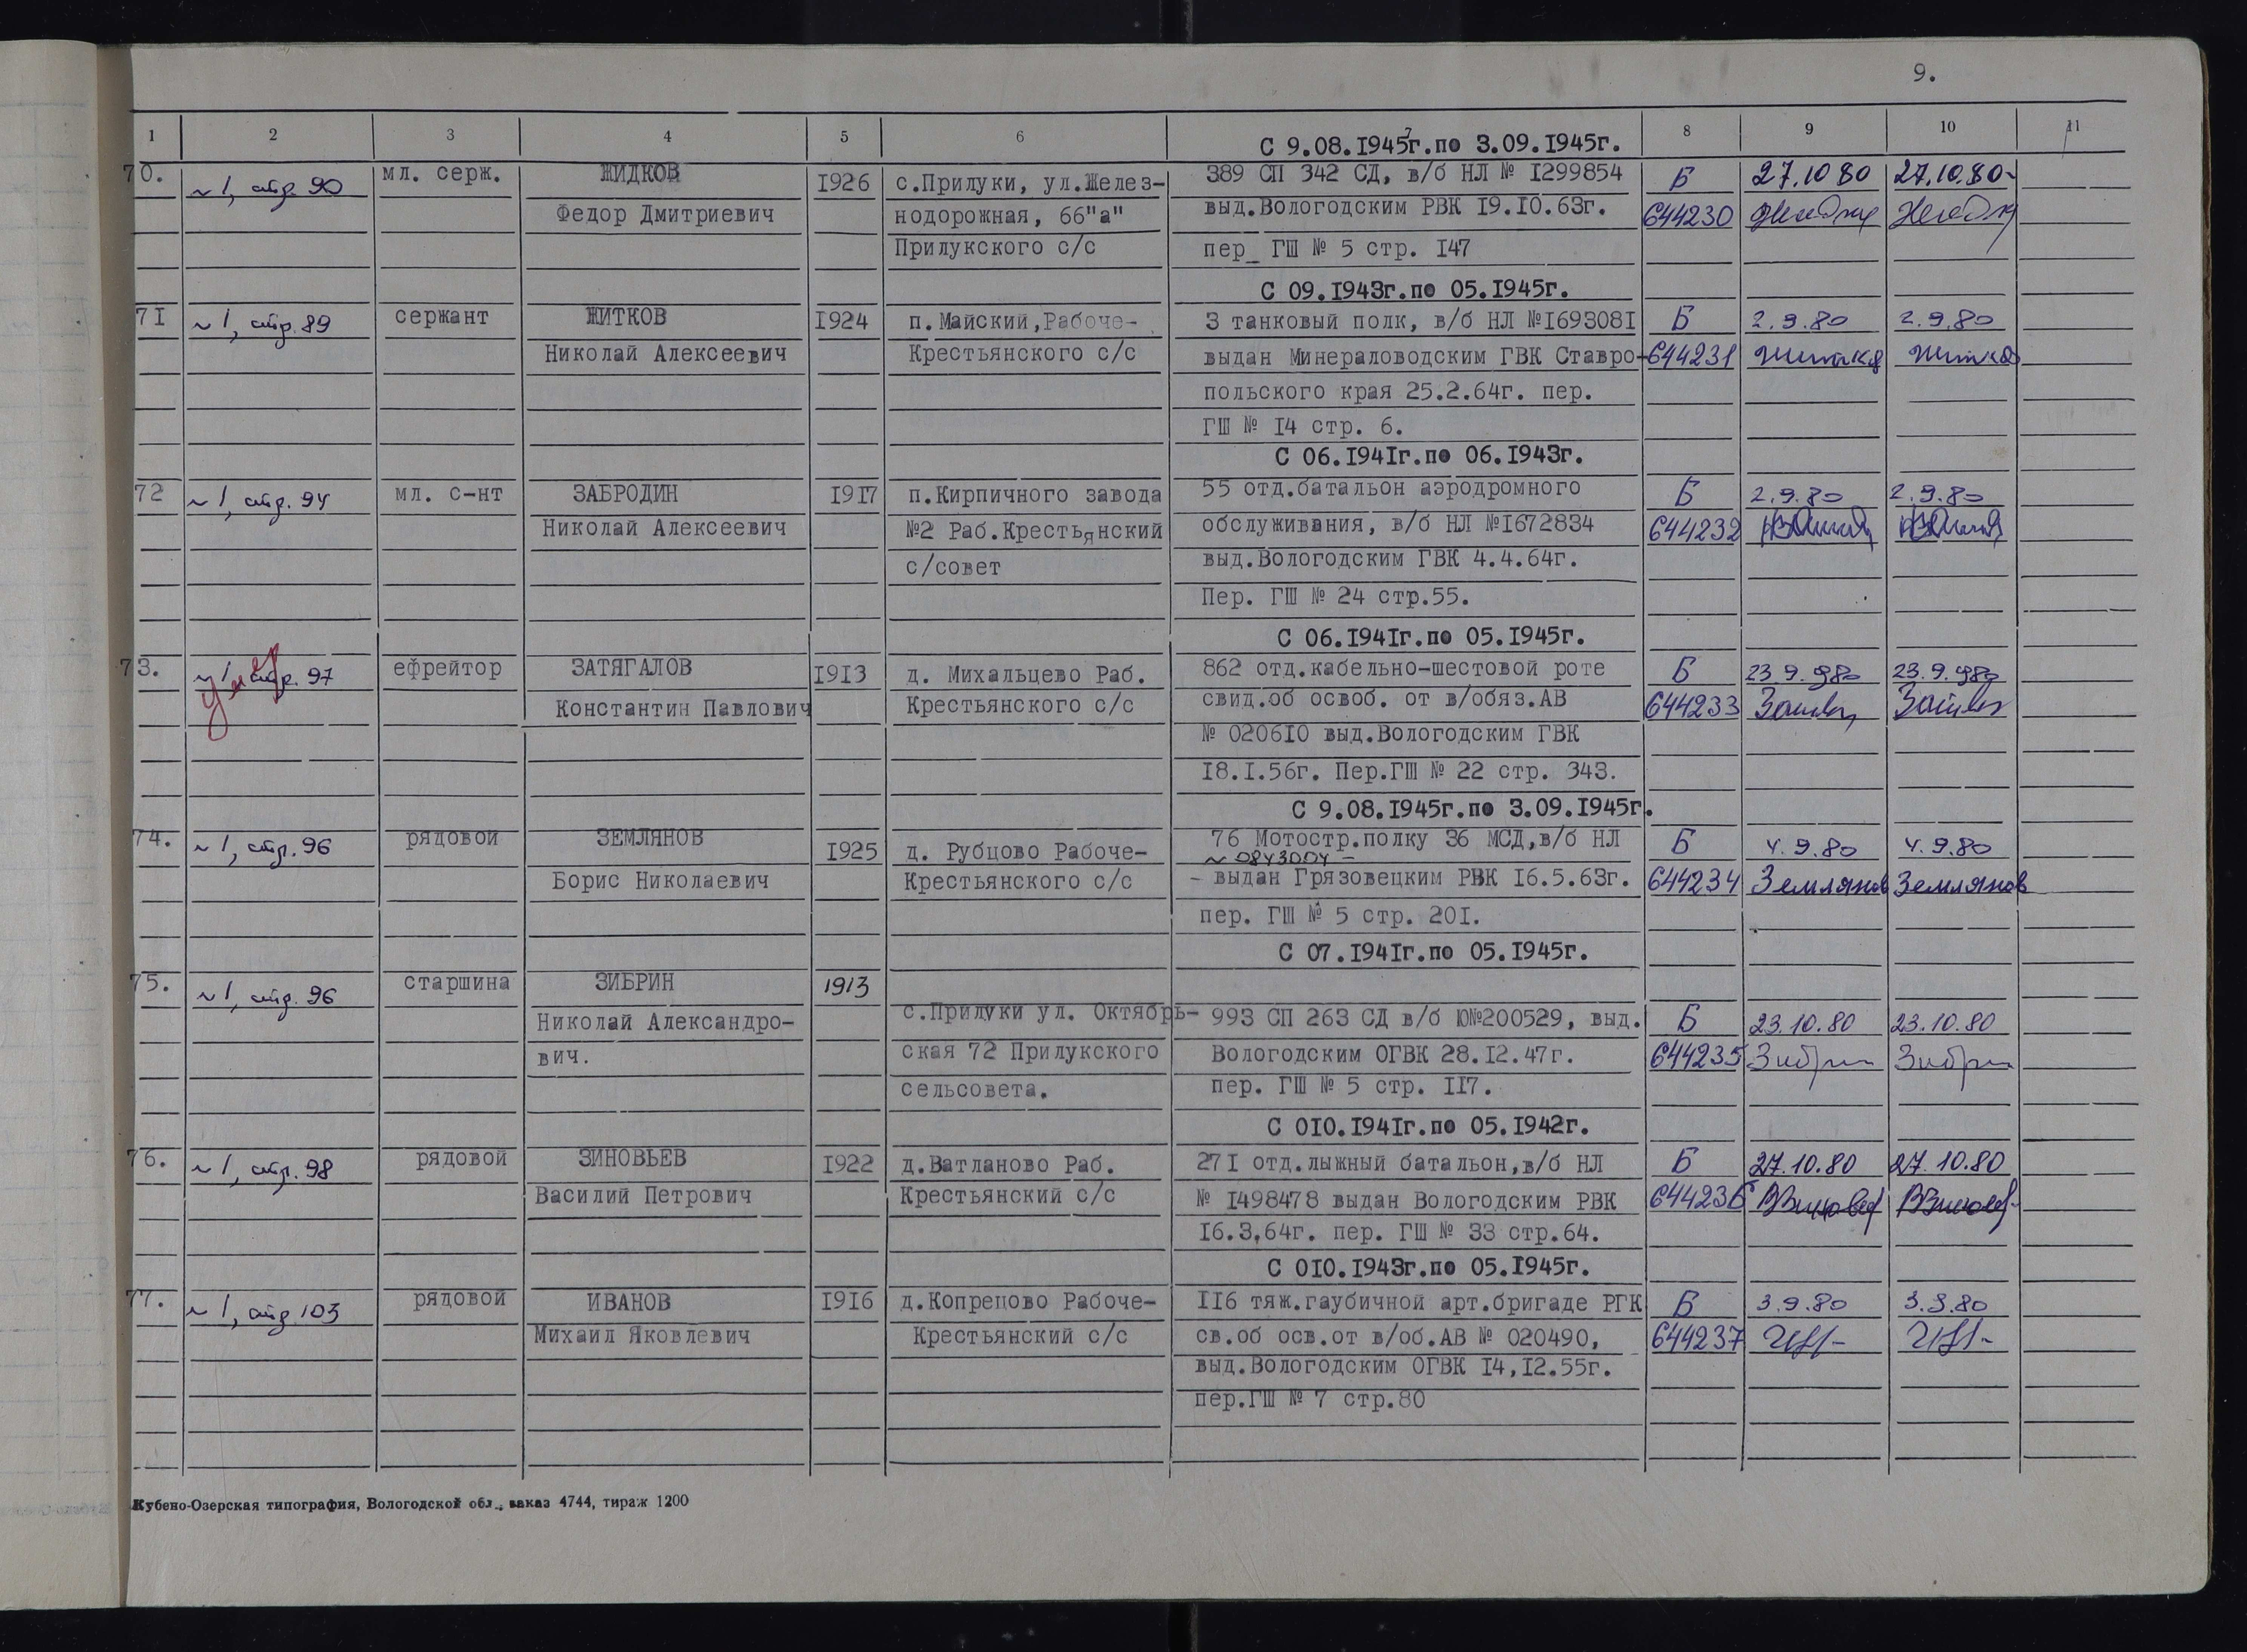 9.
1 2 3 4 5 6 7 8 9 10 11
С 9.08.1945г.по 3.09.1945г.
70. № 1, стр. 90 мл. серж. ЖИДКОВ 1926 с.Прилуки, ул.Желез- 389 СП 342 СД, в/б НЛ № 1299854 Б 27.10 80 27.10.80-
Федор Дмитриевич нодорожная, 66"а" выд.Вологодским РВК 19.10.63г. 644230
Прилукского с/с пер_ ГШ № 5 стр. 147
С 09.1943г.по 05.1945г.
71 № 1, стр. 89 сержант ЖИТКОВ 1924 п.Майский,Рабоче- 3 танковый полк, в/б НЛ №1693081 Б 2.9.80 2.9.80
Николай Алексеевич Крестьянского с/с выдан Минераловодским ГВК Ставро- 644231
польского края 25.2.64г. пер.
ГШ № 14 стр. 6.
С 06.1941г.по 06.1943г.
72 № 1, стр. 94 мл. с-нт ЗАБРОДИН 1917 п.Кирпичного завода 55 отд.батальон аэродромного Б 2.9.80 2.9.80
Николай Алексеевич №2 Раб.Крестьянский обслуживания, в/б НЛ №1672834 644232
с/совет выд.Вологодским ГВК 4.4.64г.
Пер. ГШ № 24 стр.55.
С 06.1941г.по 05.1945г.
73. № 1 стр. 97 умер ефрейтор ЗАТЯГАЛОВ 1913 д. Михальцево Раб. 862 отд.кабельно-шестовой роте Б 23.9.980 23.9.980
Константин Павлович Крестьянского с/с свид.об освоб. от в/обяз.АВ 644233
№ 020610 выд.Вологодским ГВК
18.1.56г. Пер.ГШ № 22 стр. 343.
С 9.08.1945г.по 3.09.1945г.
74. № 1, стр. 96 рядовой ЗЕМЛЯНОВ 1925 д. Рубцово Рабоче- 76 Мотостр.полку 36 МСД,в/б НЛ Б 4.9.80 4.9.80
№ 0843004 –
Борис Николаевич Крестьянского с/с - выдан Грязовецким РВК 16.5.63г. 644234 Землянов Землянов
пер. ГШ № 5 стр. 201.
С 07.1941г.по 05.1945г.
75. № 1, стр. 96 старшина ЗИБРИН 1913
Николай Александро- с.Прилуки ул. Октябрь- 993 СП 263 СД в/б Ю№200529, выд. Б 23.10.80 23.10.80
вич. ская 72 Прилукского Вологодским ОГВК 28.12.47г. 644235
сельсовета. пер. ГШ № 5 стр. 117.
С 010.1941г.по 05.1942г.
76. № 1, стр. 98 рядовой ЗИНОВЬЕВ 1922 д.Ватланово Раб. 271 отд.лыжный батальон,в/б НЛ Б 27.10.80 27.10.80
Василий Петрович Крестьянский с/с № 1498478 выдан Вологодским РВК 644236
16.3,64г. пер. ГШ № 33 стр.64.
С 010.1943г.по 05.1945г.
77. № 1, стр 103 рядовой ИВАНОВ 1916 д.Копрецово Рабоче- 116 тяж.гаубичной арт.бригаде РГК Б 3.9.80 3.9.80
Михаил Яковлевич Крестьянский с/с св.об осв.от в/об.АВ № 020490, 644237
выд.Вологодским ОГВК 14,12.55г.
пер.ГШ № 7 стр.80
Кубено-Озерская типография, Вологодской обл., заказ 4744, тираж 1200